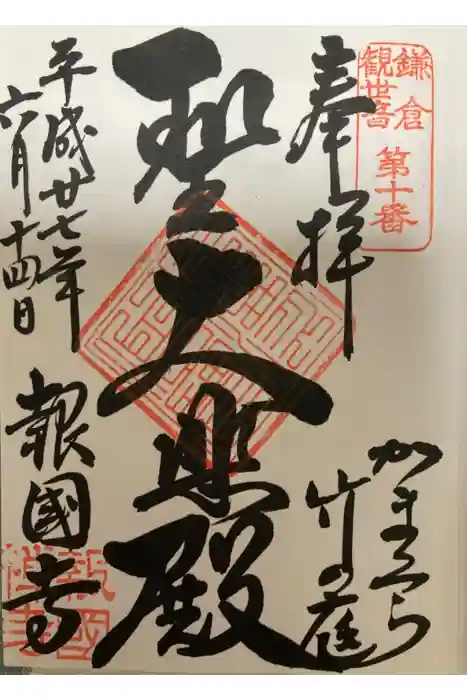 鎌倉
観世音
第十番
奉拝
かまくら
竹の庭
聖大悲殿
平成廿七年
六月十四日
報國寺